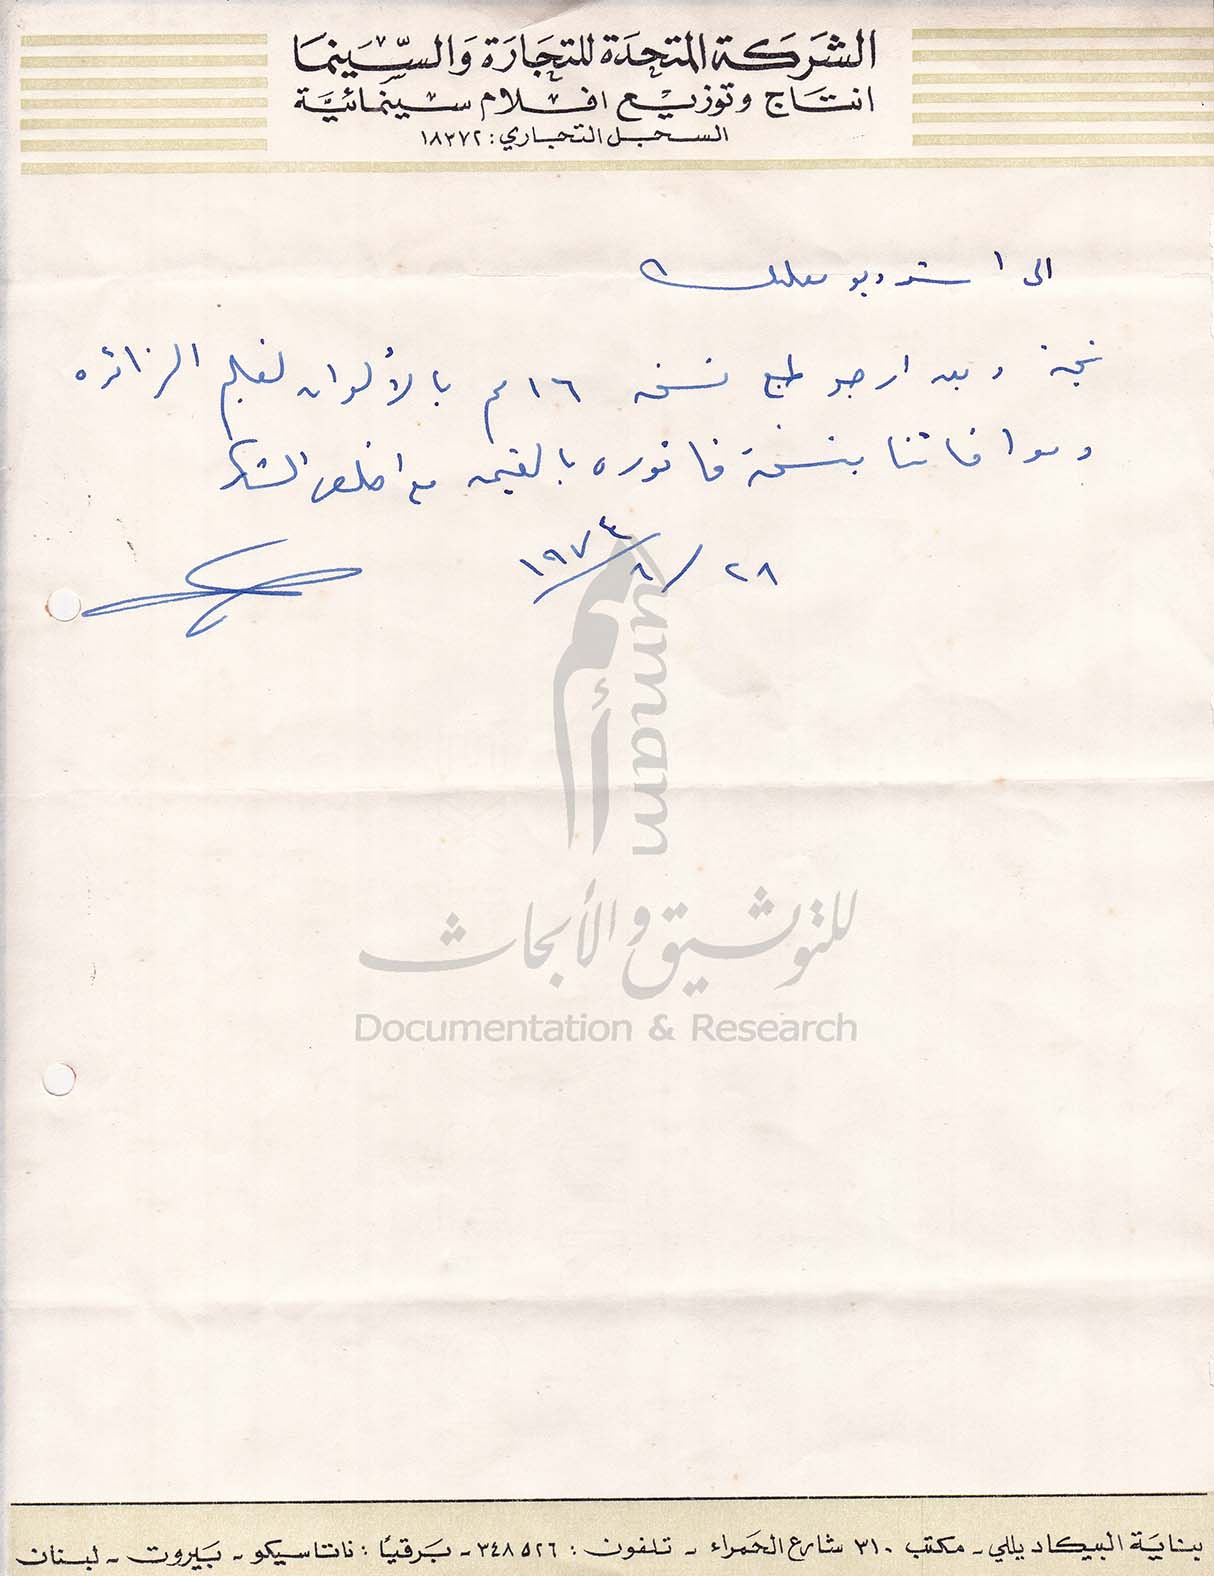 الشركة المتحدة للتجارة والسينما
انتاج وتوزيع افلام سينمائية
السجل التجاري: ١٨٣٧٢
الى استوديو بعلبك
تحية وبعد ارجو طبع نسخه ١٦ مم بالألوان لفيلم الزائره
وموافاتنا بنسخة فاتوره بالقيمه مع اخلص الشكر
٢٨/٨/١٩٧٤
أمم
umam
للتوثيق والأبحاث
Documentation & Research
بناية البيكاديللي - مكتب ٣١٠ شارع الحمراء - تلفون: ٣٤٨٥٢٦ - برقيا: ناتاسيكو - بيروت - لبنان